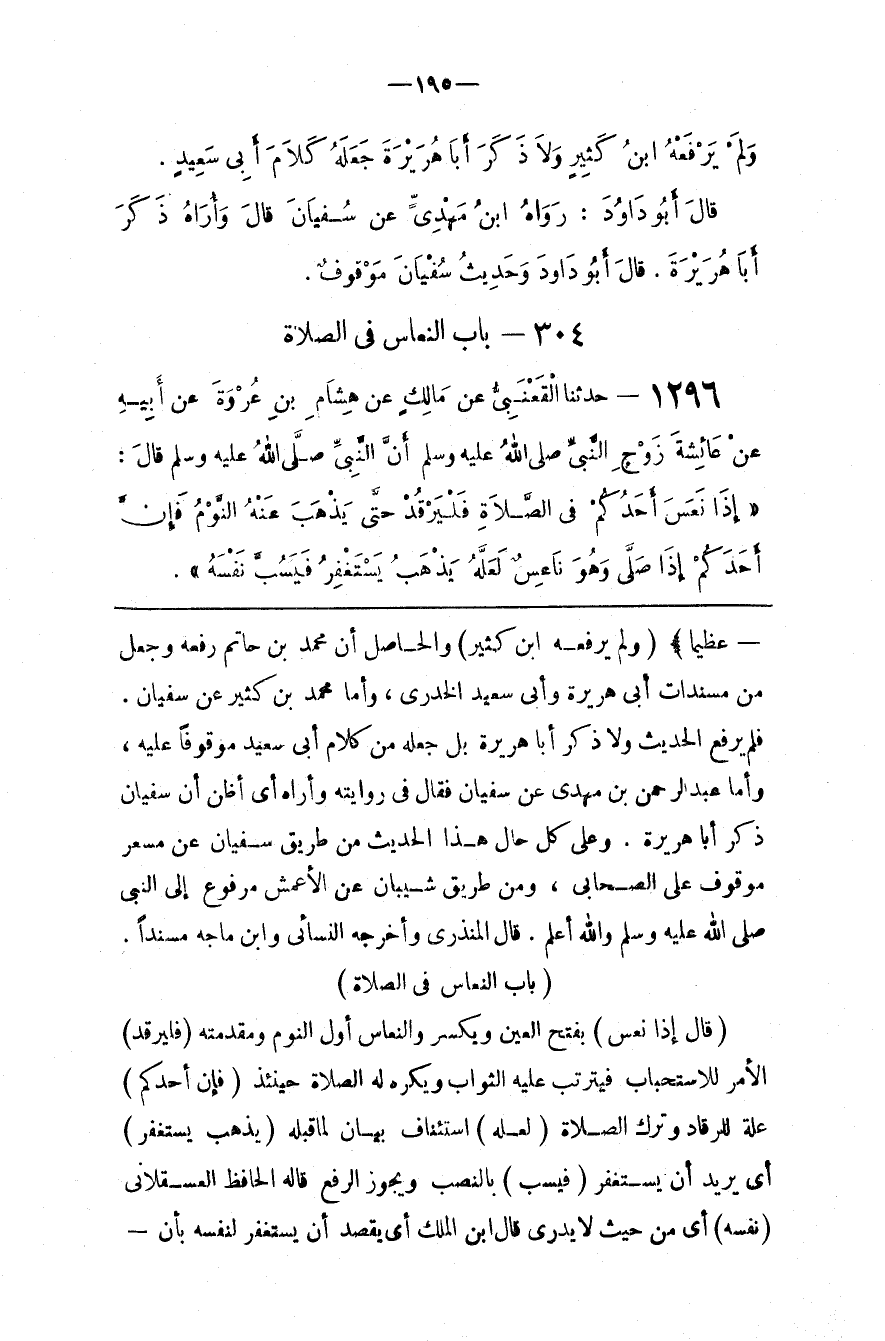 —١٩٥—
وَلَمْ يَرْفَعْهُ ابنُ كَثِيرٍ وَلاَ ذَكَرَ أَبَا هُرَيْرَةَ جَعَلَهُ كَلاَمَ أَبِى سَعِيدٍ .
قالَ أَبُو دَاوُدَ : رَوَاهُ ابنُ مَهْدِىٍّ عن سُفيانَ قالَ وَأُرَاهُ ذَكَرَ
أَبَا هُرَيْرَةَ . قالَ أَبُو دَاودَ وَحَدِيثُ سُفْيَانَ مَوْقوفٌ .
٣٠٤ — باب النعاس فى الصلاة
١٢٩٦ — حدثنا الْقَعْنَبِىُّ عن مَالِكٍ عن هِشَامِ بنِ عُرْوَةَ عن أَبِيهِ
عنْ عَائِشةَ زَوْجِ النَّبىِّ صلى اللهُ عليه وسلم أَنَّ النَّبِىَّ صَلَّى اللهُ عليه وسلم قالَ :
« إِذَا نَعَسَ أَحَدُكُمْ فى الصَّلاَةِ فَلْيَرْقُدْ حتَّى يَذْهَبَ عَنْهُ النَّوْمُ فَإِنَّ
أَحَدَكُمْ إِذَا صَلَّى وَهُوَ نَاعِسٌ لَعَلَّهُ يَذْهَبُ يَسْتَغْفِرُ فَيَسُبَّ نَفْسَهُ » .
— عظيما ﴾ ( ولم يرفعه ابن كثير) والحاصل أن محمد بن حاتم رفعه وجعل
من مسندات أبى هريرة وأبى سعيد الخدرى ، وأما محمد بن كثير عن سفيان .
فلم يرفع الحديث ولا ذكر أبا هريرة بل جعله من كلام أبى سعيد موقوفاً عليه ،
وأما عبد الرحمن بن مهدى عن سفيان فقال فى روايته وأراه أى أظن أن سفيان
ذكر أبا هريرة . وعلى كل حال هذا الحديث من طريق سفيان عن مسعر
موقوف على الصحابى ، ومن طريق شيبان عن الأعمش مرفوع إلى النبى
صلى الله عليه وسلم والله أعلم . قال المنذرى وأخرجه النسائى وابن ماجه مسنداً .
( باب النعاس فى الصلاة )
( قال إذا نعس ) بفتح العين ويكسر والنعاس أول النوم ومقدمته (فليرقد)
الأمر للاستحباب فيترتب عليه الثواب ويكره له الصلاة حينئذ ( فإن أحدكم )
علة للرقاد وترك الصلاة ( لعله ) استئناف بيان لما قبله ( يذهب يستغفر )
أى يريد أن يستغفر ( فيسب ) بالنصب ويجوز الرفع قاله الحافظ العسقلانى
(نفسه) أى من حيث لا يدرى قال ابن الملك أى يقصد أن يستغفر لنفسه بأن —